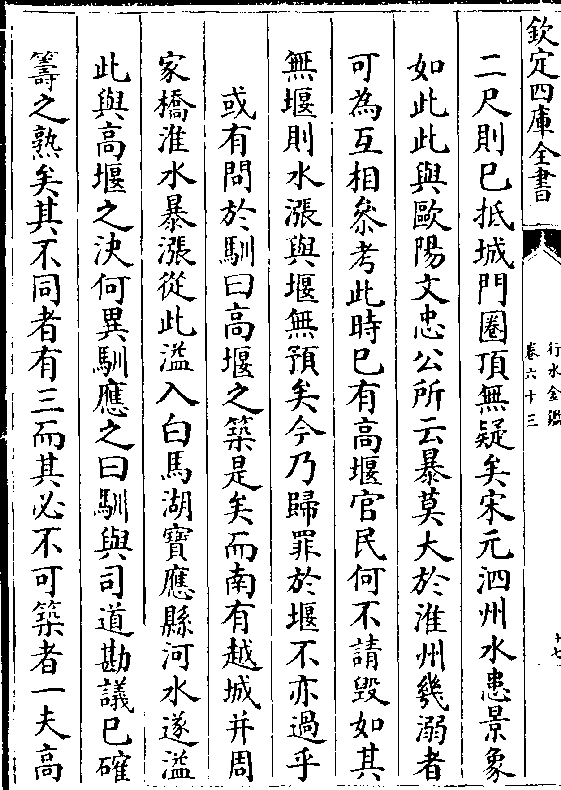 欽定四庫全書
行水金鑑
卷六十三
十七
二尺則已抵城門圈頂無疑矣宋元泗州水患景象
如此此與歐陽文忠公所云暴莫大於淮州幾溺者
可為互相叅考此時已有高堰官民何不請毀如其
無堰則水漲與堰無預矣今乃歸罪於堰不亦過乎
或有問於馴曰高堰之築是矣而南有越城并周
家橋淮水暴漲從此溢入白馬湖寶應縣河水遂溢
此與高堰之決何異馴應之曰馴與司道勘議已確
籌之熟矣其不同者有三而其必不可築者一夫高